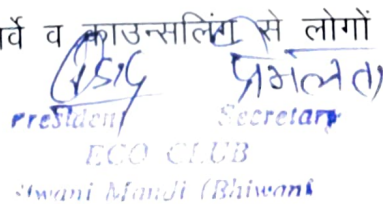 र्वे व काउन्सलिंग से लोगों
प्रेमलता
President Secretary
ECO CLUB
Siwani Mandi (Bhiwani